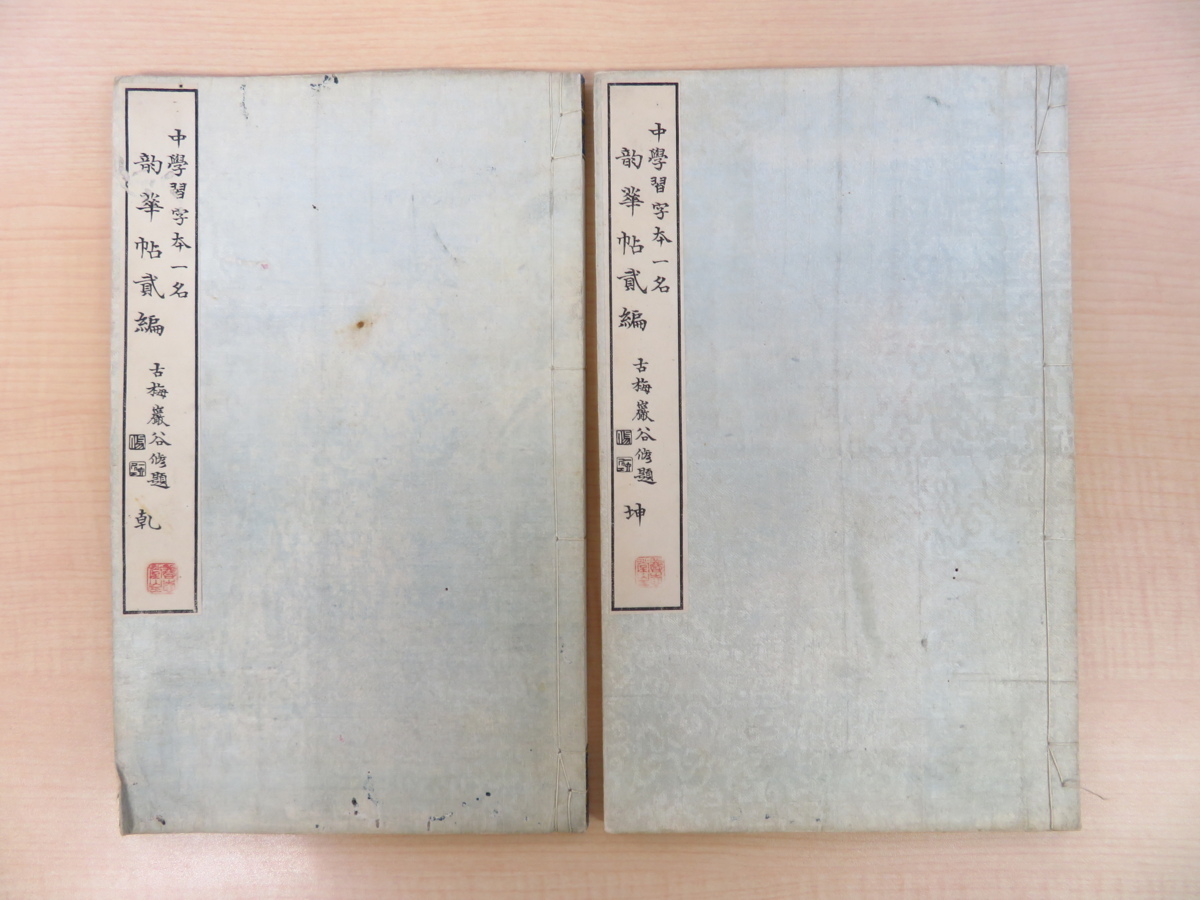 中學習字本一名
韵華帖貳編
古梅巖谷修題
乾
中學習字本一名
韵華帖貳編
古梅巖谷修題
坤